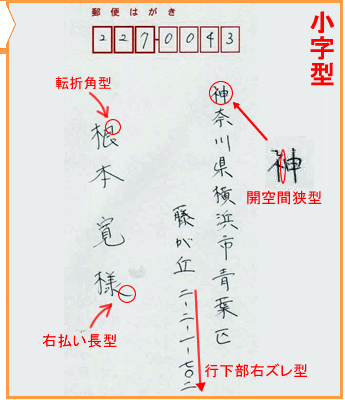 小字型
郵便はがき
227-0043
転折角型
神奈川県横浜市青葉区
藤が丘二-二-一-七〇二
根本寛様
神
開空間狭型
右払い長型
行下部右ズレ型